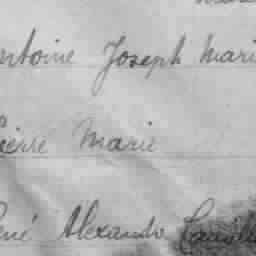 Antoine Joseph Mari
Pierre Marie
René Alexandre